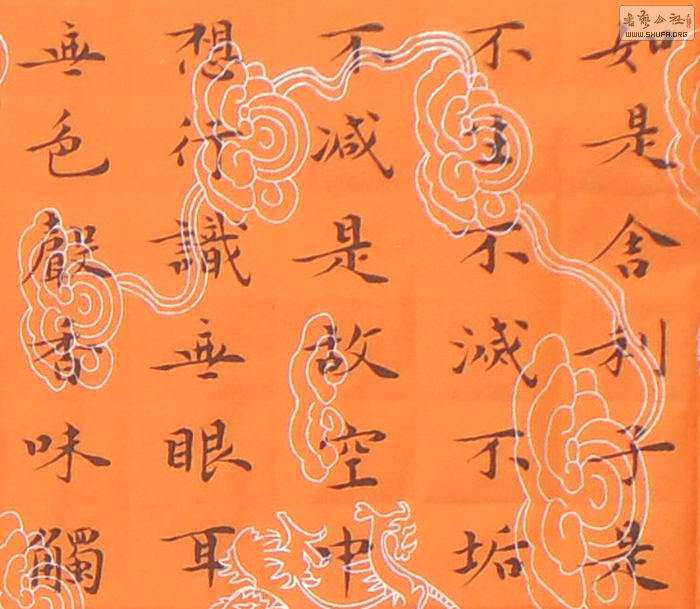 如是舍利子是
不生不滅不垢
不减是故空中
想行識無眼耳
無色聲香味觸
書藝公社
WWW.SHUFA.ORG